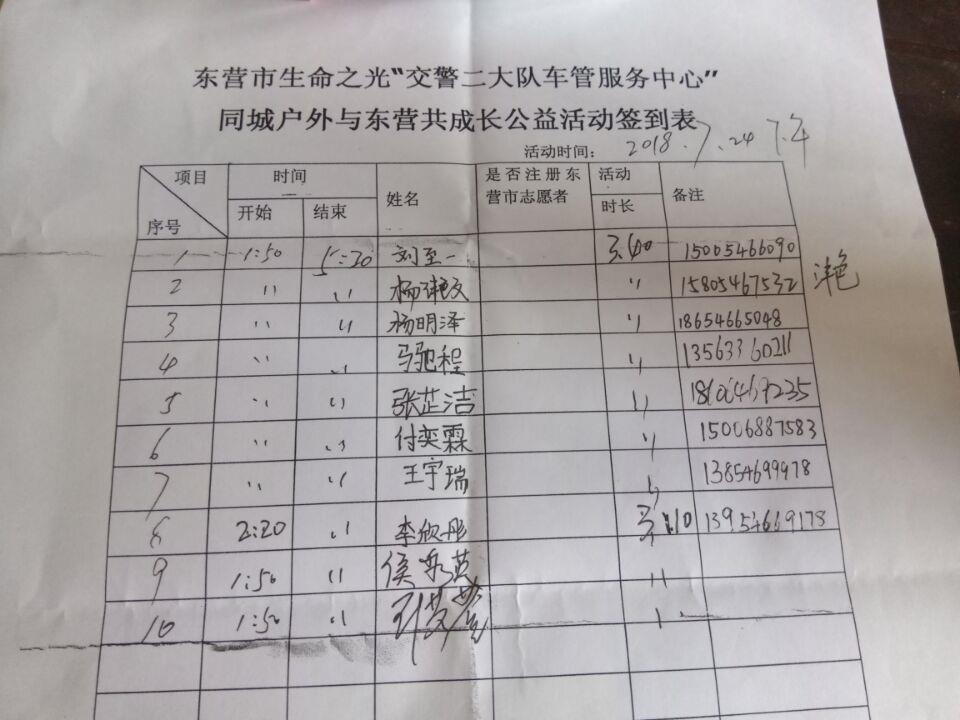 东营市生命之光“交警二大队车管服务中心”
同城户外与东营共成长公益活动签到表
活动时间： 2018.7.24 下午
项目 时间 姓名 是否注册东营市志愿者 活动 备注
序号 开始 结束 时长
1 1:50 5:20 刘至一 3.40 15005466090
2 〃 〃 杨 〃 15805467532
3 〃 〃 杨明泽 〃 18654665048
4 〃 〃 马驰程 〃 13563360211
5 〃 〃 张芷洁 〃
6 〃 〃 付奕霖 〃 15006887583
7 〃 〃 王宇瑞 〃 13854699978
8 2:20 〃 李欣彤 13954669178
9 1:50 〃 侯 英 〃
10 1:50 〃 〃